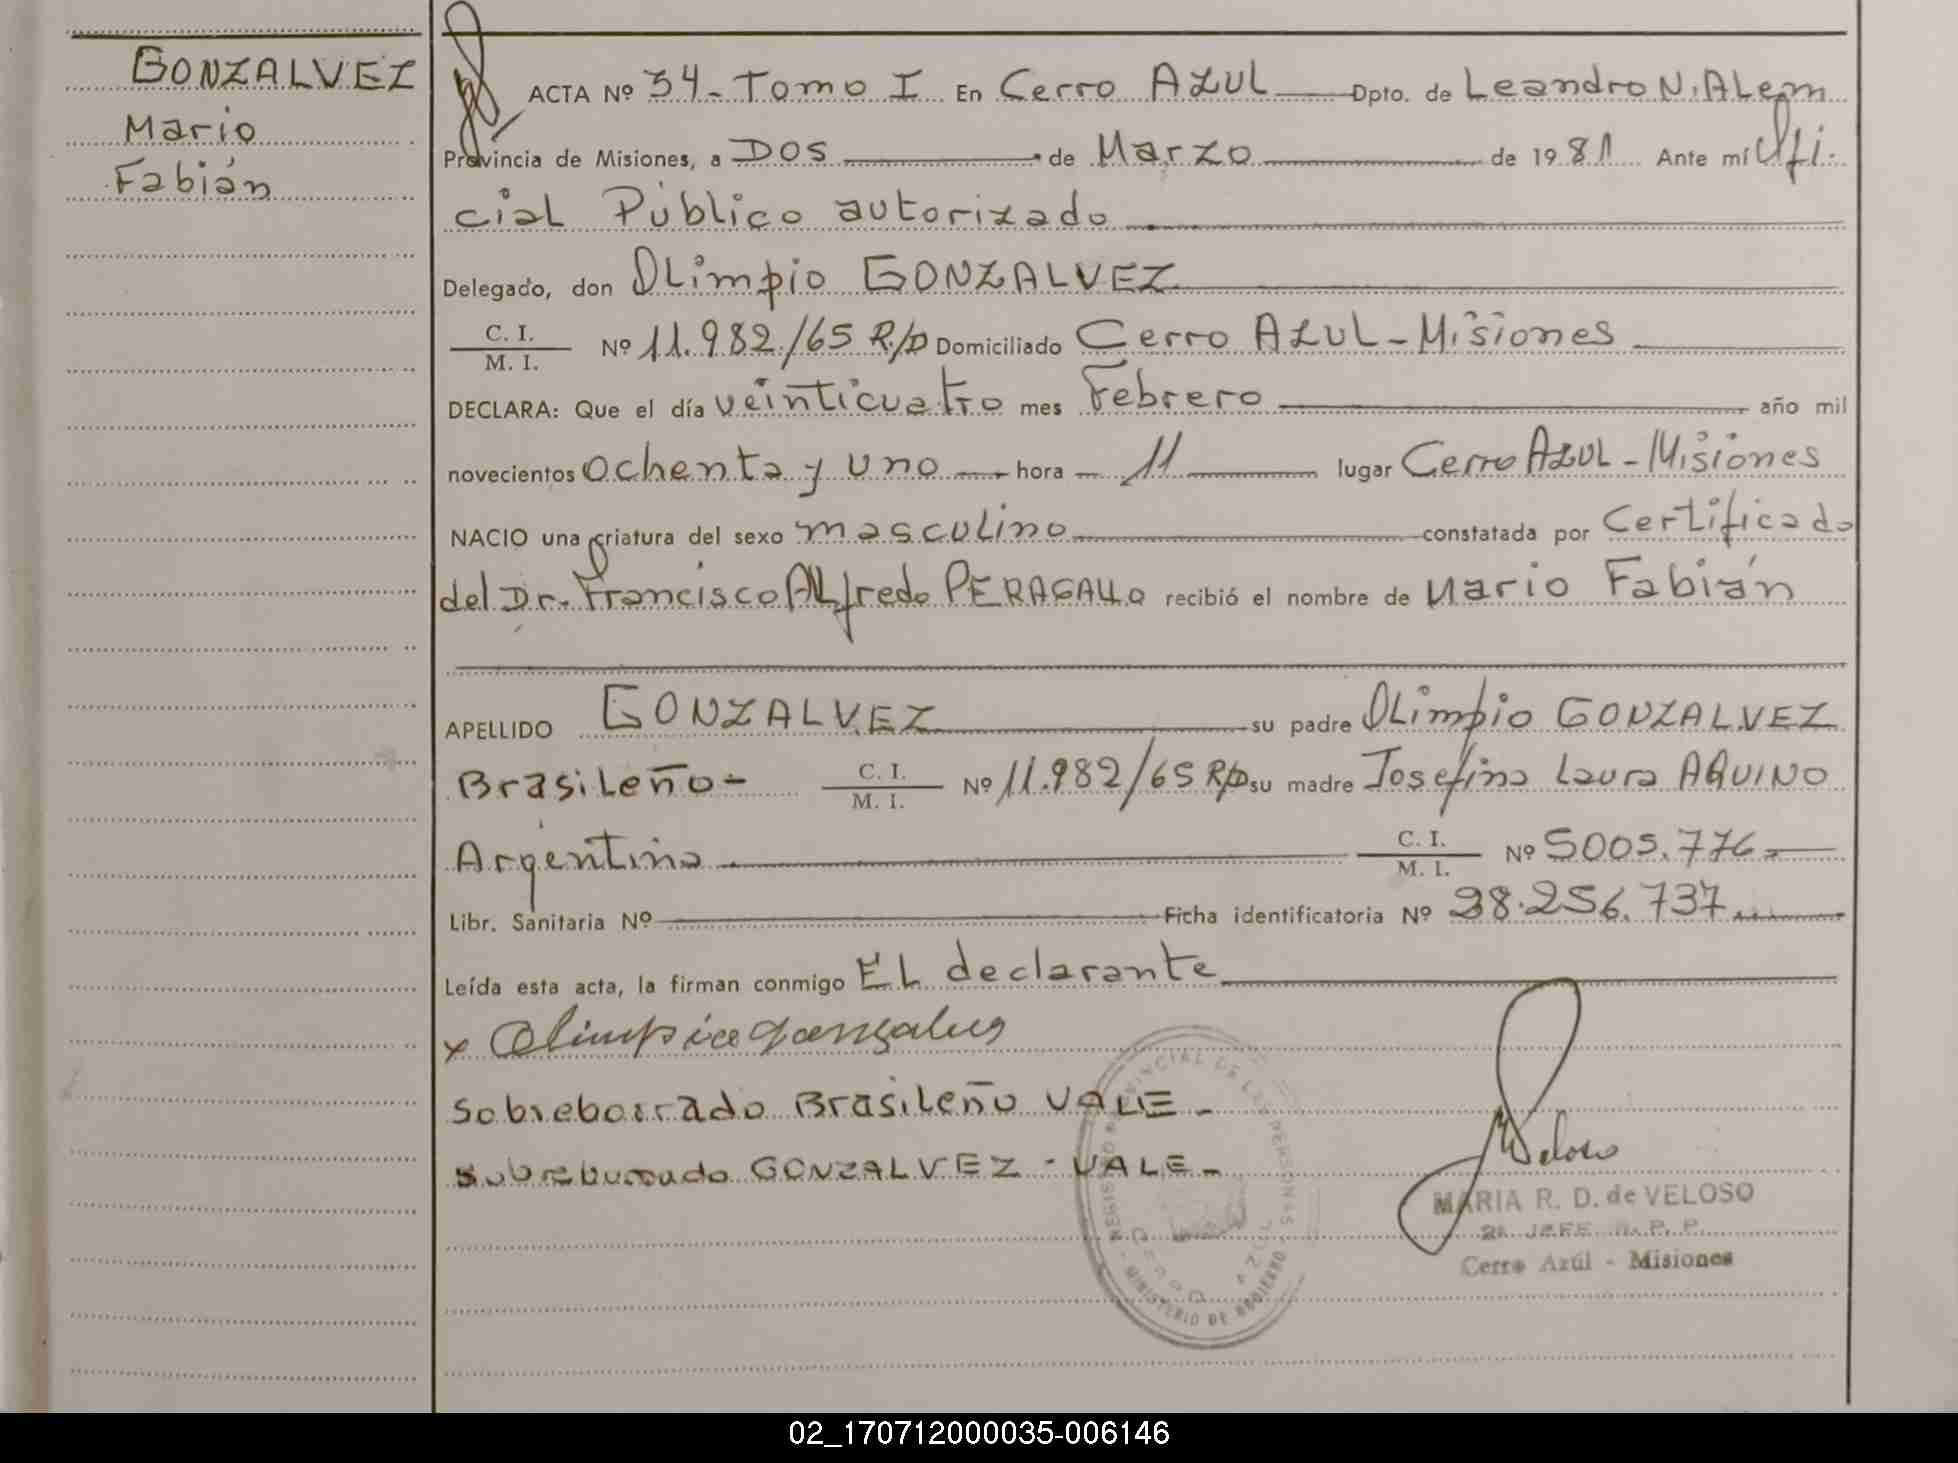 GONZALVEZ
Mario
Fabián
ACTA Nº 34 - Tomo I En Cerro AZUL Dpto. de Leandro N. ALem
Provincia de Misiones, a DOS de Marzo de 1981 Ante mí Ofi-
cial Público autorizado
Delegado, don OLimpio GONZALVEZ
C. I.
M. I.
Nº 11.982/65 R/D Domiciliado Cerro AZUL - Misiones
DECLARA: Que el día veinticuatro mes Febrero año mil
novecientos ochenta y uno hora - 11 lugar Cerro AZUL - Misiones
NACIO una criatura del sexo masculino constatada por Certificado
del Dr. Francisco ALfredo PERAGALLO recibió el nombre de Mario Fabián
APELLIDO GONZALVEZ su padre OLimpio GONZALVEZ
Brasileño - C. I. M. I. Nº 11.982/65 R/D su madre Josefina Laura AQUINO
Argentina C. I. M. I. Nº 5005.776 -
Libr. Sanitaria Nº Ficha identificatoria Nº 28.256.737
Leída esta acta, la firman conmigo EL declarante
x Olimpio gonzalves
Sobreborrado Brasileño VALE -
Sobreborrado GONZALVEZ - VALE -
Veloso
MARIA R. D. de VELOSO
JEFE R. P. P.
Cerro Azúl - Misiones
REGISTRO PROVINCIAL DE LAS PERSONAS
CERRO AZUL
- MINISTERIO DE GOBIERNO -
02_170712000035-006146